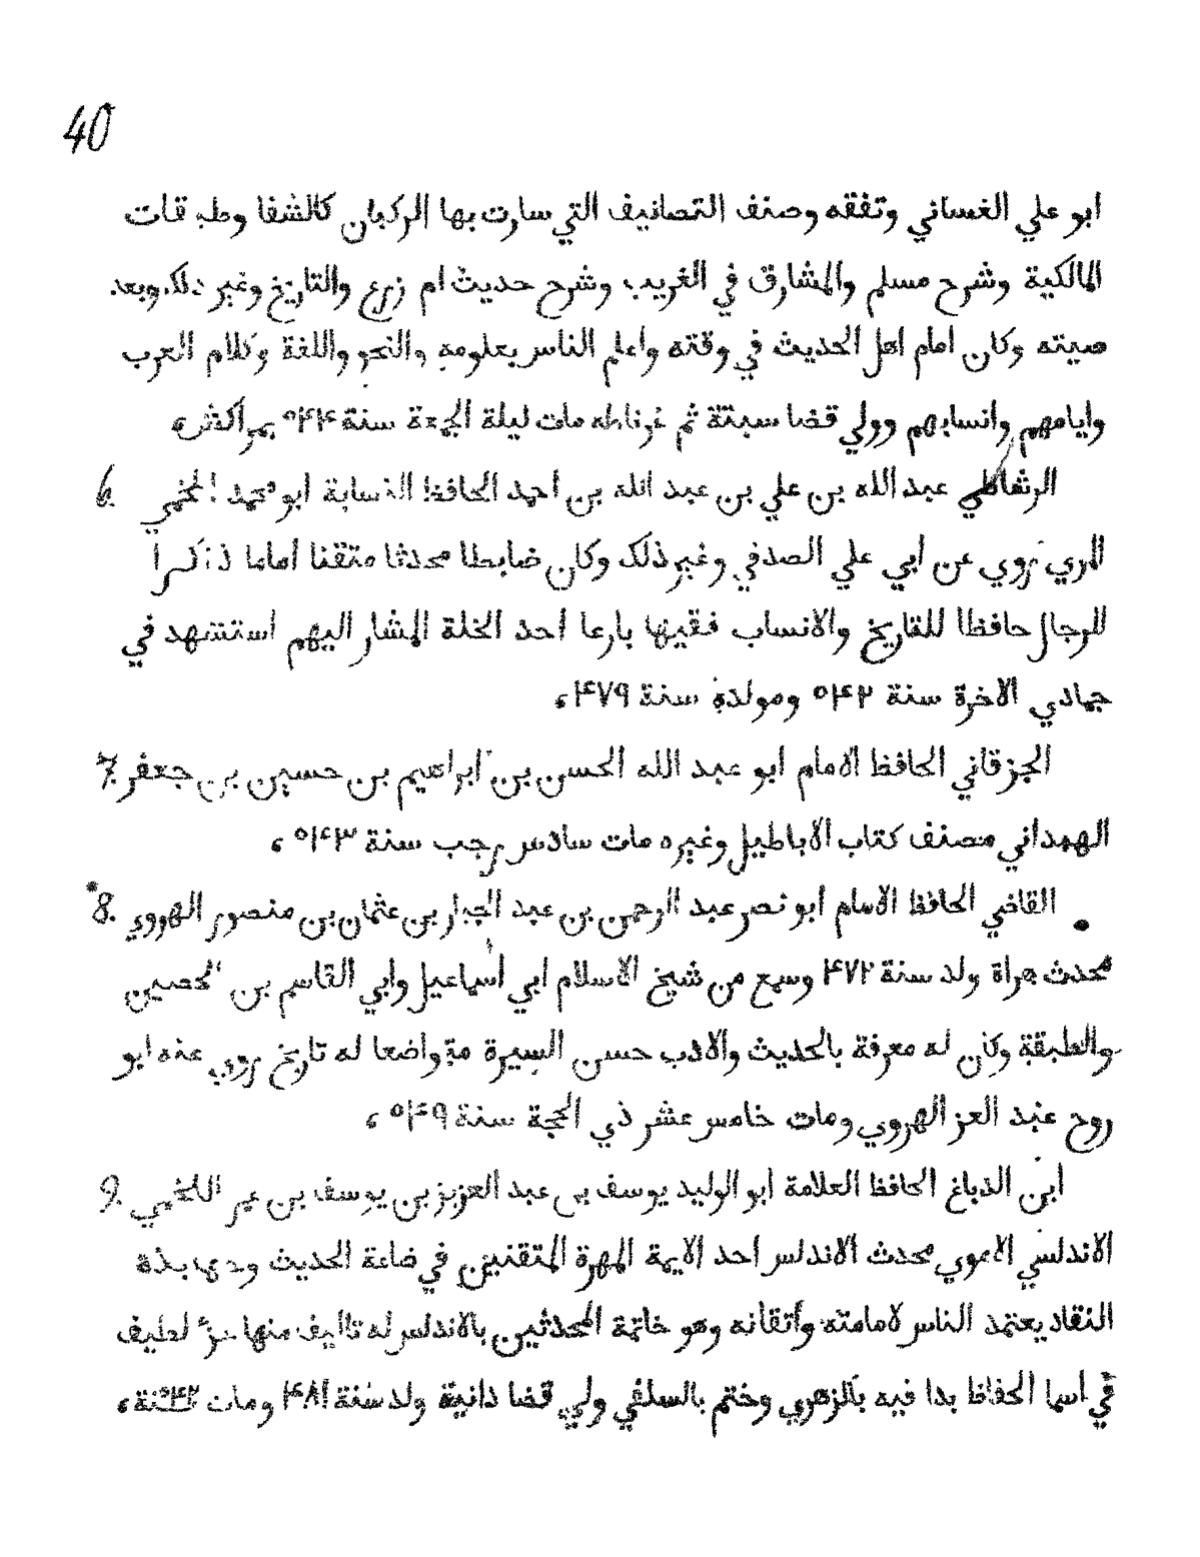 40
ابو علي الغساني وتفقه وصنف التصانيف التي سارت بها الركبان كالشفا وطبقات
المالكية وشرح مسلم والمشارق في الغريب وشرح حديث ام زرع والتاريخ وغير ذلك وبعد
صيته وكان امام اهل الحديث في وقته واعلم الناس بعلومه والنحو واللغة وكلام العرب
وايامهم وانسابهم وولي قضا سبتة ثم غرناطه مات ليلة الجمعة سنة ٥۴۴ بمراكش ه
6. الرشاطي عبد الله بن علي بن عبد الله بن احمد الحافظ النسابة ابو محمد اللخمي
المري روي عن ابي علي الصدفي وغير ذلك وكان ضابطا محدثا متقنا اماما ذاكرا
للرجال حافظا للتاريخ والانساب فقيها بارعا احد الجلة المشار اليهم استشهد في
جمادي الاخرة سنة ٥۴٢ ومولده سنة ۴٧٩ ه
7. الجزقاني الحافظ الامام ابو عبد الله الحسن بن ابراهيم بن حسين بن جعفر
الهمداني مصنف كتاب الاباطيل وغيره مات سادس رجب سنة ٥۴٣ ه
8.* القاضي الحافظ الامام ابو نصر عبد الرحمن بن عبد الجبار بن عثمان بن منصور الهروي
محدث هراة ولد سنة ۴٧٢ وسمع من شيخ الاسلام ابي اسماعيل وابي القاسم بن الحصين
والطبقة وكان له معرفة بالحديث والادب حسن السيرة متواضعا له تاريخ روي عنه ابو
روح عبد العز الهروي ومات خامس عشر ذي الحجة سنة ٥۴٩ ه
9. ابن الدباغ الحافظ العلامة ابو الوليد يوسف بن عبد العزيز بن يوسف بن عمر اللخمي
الاندلسي الاموي محدث الاندلس احد الايمة المهرة المتقنين في صاعة الحديث وجهابذة
النقاد يعتمد الناس لامامته واتقانه وهو خاتمة المحدثين بالاندلس له تاليف منها جزء لطيف
في اسما الحفاظ بدا فيه بالزهري وختم بالسلفي ولي قضا دانية ولد سنة ۴٨١ ومات سنة ٥۴٢ ه